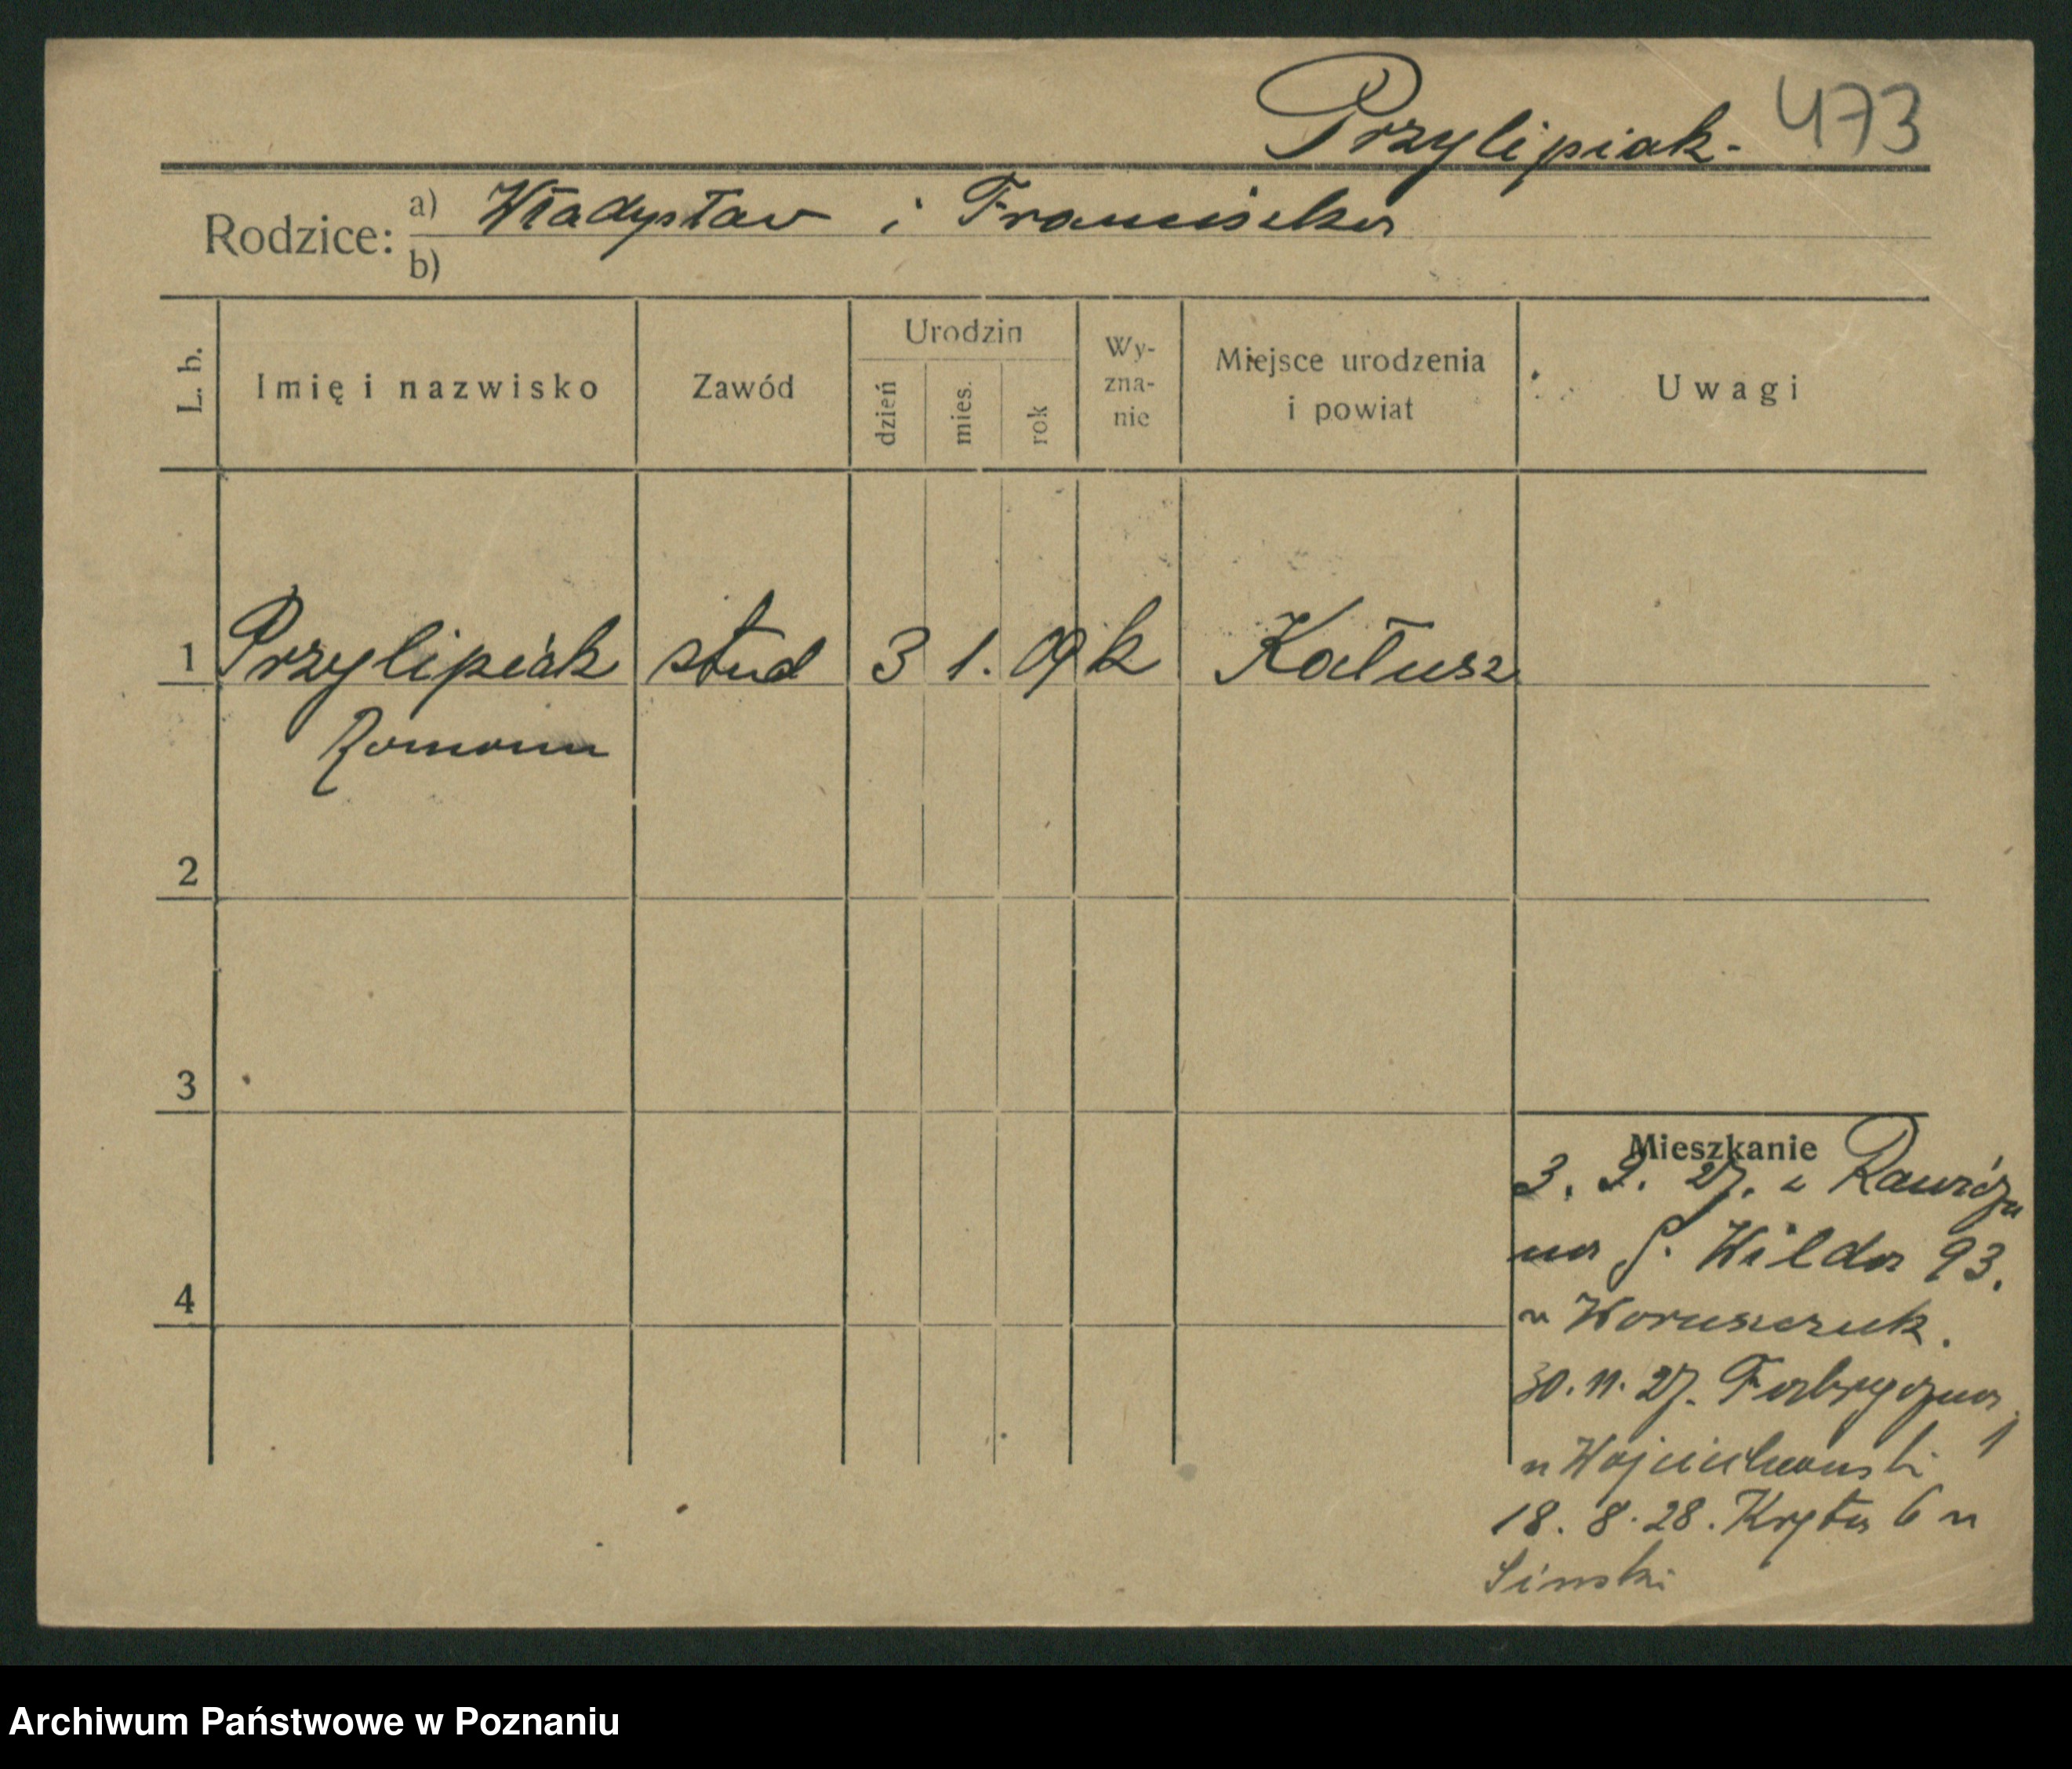 Przylipiak- 473
Rodzice: a) Władysław i Franciszka
b)
L. b. Imię i nazwisko Zawód Urodzin dzień mies. rok Wy-zna-nie Miejsce urodzenia i powiat Uwagi
1 Przylipiak stud 3 1. 09 k Kałusz
Roman
2
3
4
Mieszkanie
3. 9. 27. z Rawicza
na G. Wilda 93.
u Woruszczuk.
30. 11. 27. Fabryczna 1
u Wojciechowski
18. 8. 28. Kręta 6 u
Sinski
Archiwum Państwowe w Poznaniu